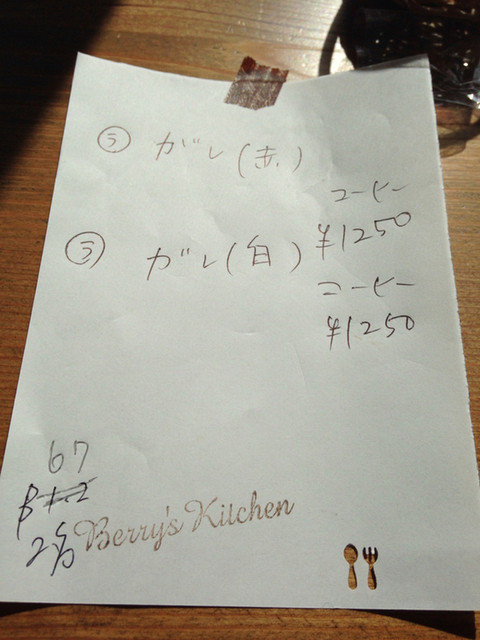 ラ ガレ(赤)
コーヒー
¥1250
ラ ガレ(白)
コーヒー
¥1250
67
2名
Berry's Kitchen